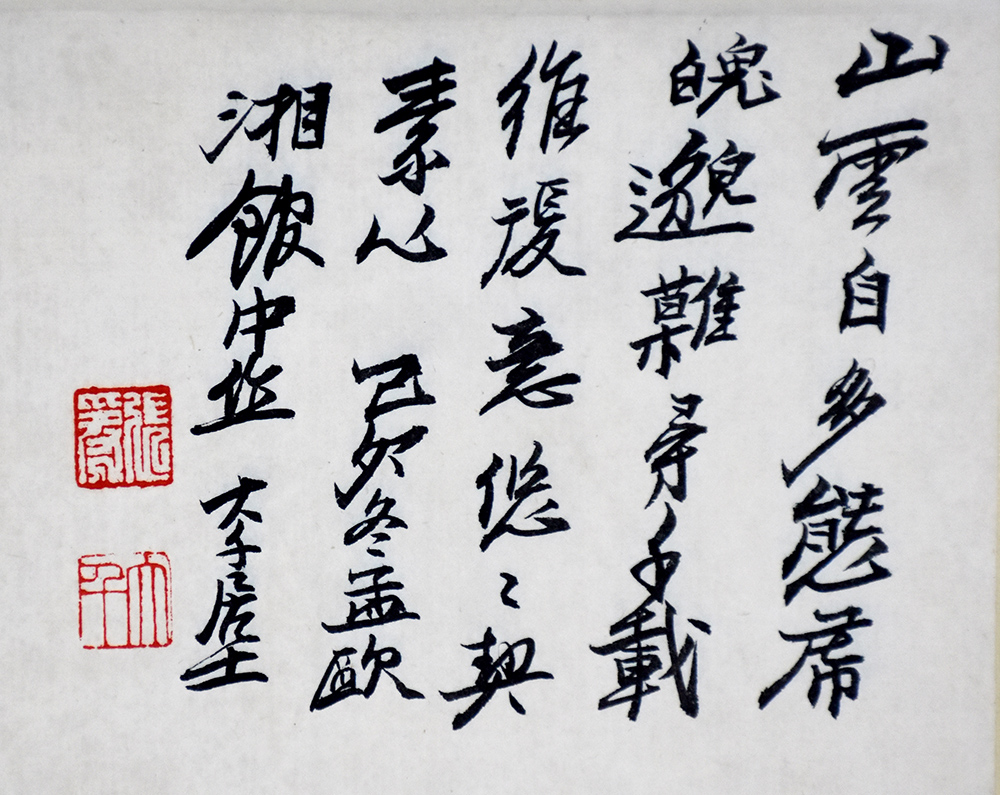 山雲自多態
魄邈難尋千載
維意悠〻契
素心 己亥冬孟歐
湘館中作 大千居士
張爰
大千